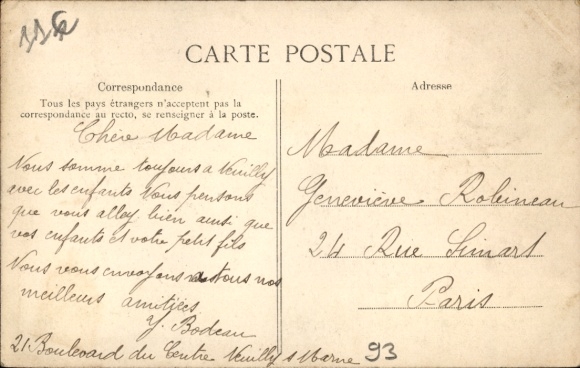 CARTE POSTALE
Correspondance
Tous les pays étrangers n'acceptent pas la
correspondance au recto, se renseigner à la poste.
Chère Madame
Nous somme toujours a Neuilly
avec les enfants Nous pensons
que vous alley bien ainsi que
vos enfants et votre petit fils
Nous vous envoyons tous nos
meilleurs amitiées
Y. Bodeau
21 Boulevard du Centre Neuilly s Marne 93
Adresse
Madame
Geneviève Robineau
24 Rue Simart
Paris